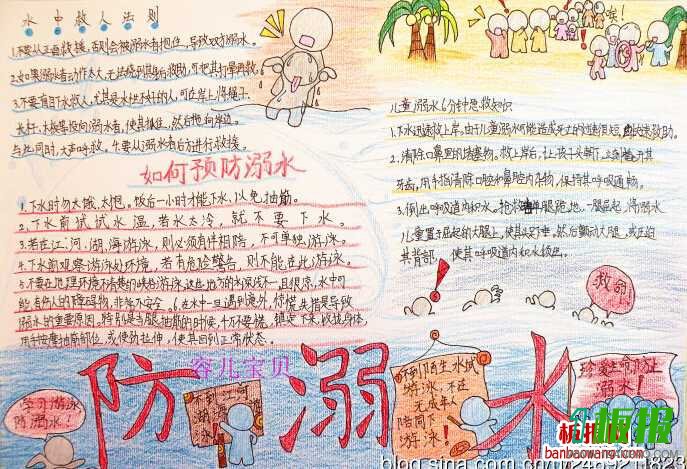 水中救人法则
1.不要从正面救援,否则会被溺水者抱住,导致双方溺水。
2.如果溺水者动作太大,无法绕到其背后救助,可把其打晕再救。
3.不要盲目下水救人,尤其是水性不好的人,可在岸上将绳子、
长杆、木板等投向溺水者,使其抓住,然后拖向岸边。
与此同时,大声呼救,
要从溺水者后方进行救援。
如何预防溺水
1.下水时勿太饿、太饱。饭后一小时才能下水,以免抽筋。
2.下水前试试水温,若水太冷,就不要下水。
3.若在江、河、湖、海游泳,则必须有伴相陪,不可单独游泳。
4.下水前观察游泳处环境,若有危险警告,则不能在此游泳。
5.不要在地理环境不清楚的峡谷游泳。这些地方的水深浅不一,且很凉,水中可
能有伤人的障碍物,非常不安全。6.在水中一旦遇到意外,惊慌失措是导致
溺水的重要原因。特别是当腿抽筋的时候,千万不要慌,镇定下来,收拢身体,
用手按摩抽筋部位,或使劲拉伸,使其回到正常状态。
埃!
儿童溺水6分钟急救知识
1.下水迅速救上岸。由于儿童溺水可能造成死亡的过程很短,
2.清除口鼻里的堵塞物。救上岸后,让孩子头朝下,
牙齿,用手指清除口腔和鼻腔内杂物,保持其呼吸道通畅。
3.倒出呼吸道内积水。
一腿屈起,将溺水
儿童置于屈起的大腿上,使其头朝下,然后颤动大腿,或压迫
其背部,使其呼吸道内积水倾出。
救命!
容儿宝贝
防溺水
学习游泳
防溺水!
不到江河
不到陌生水域
游泳,不在
无成年人
陪同下
游泳!
珍爱生命防止
溺水!
板报
banbaowang.com
blog.sina.com.cn/u/2459211823